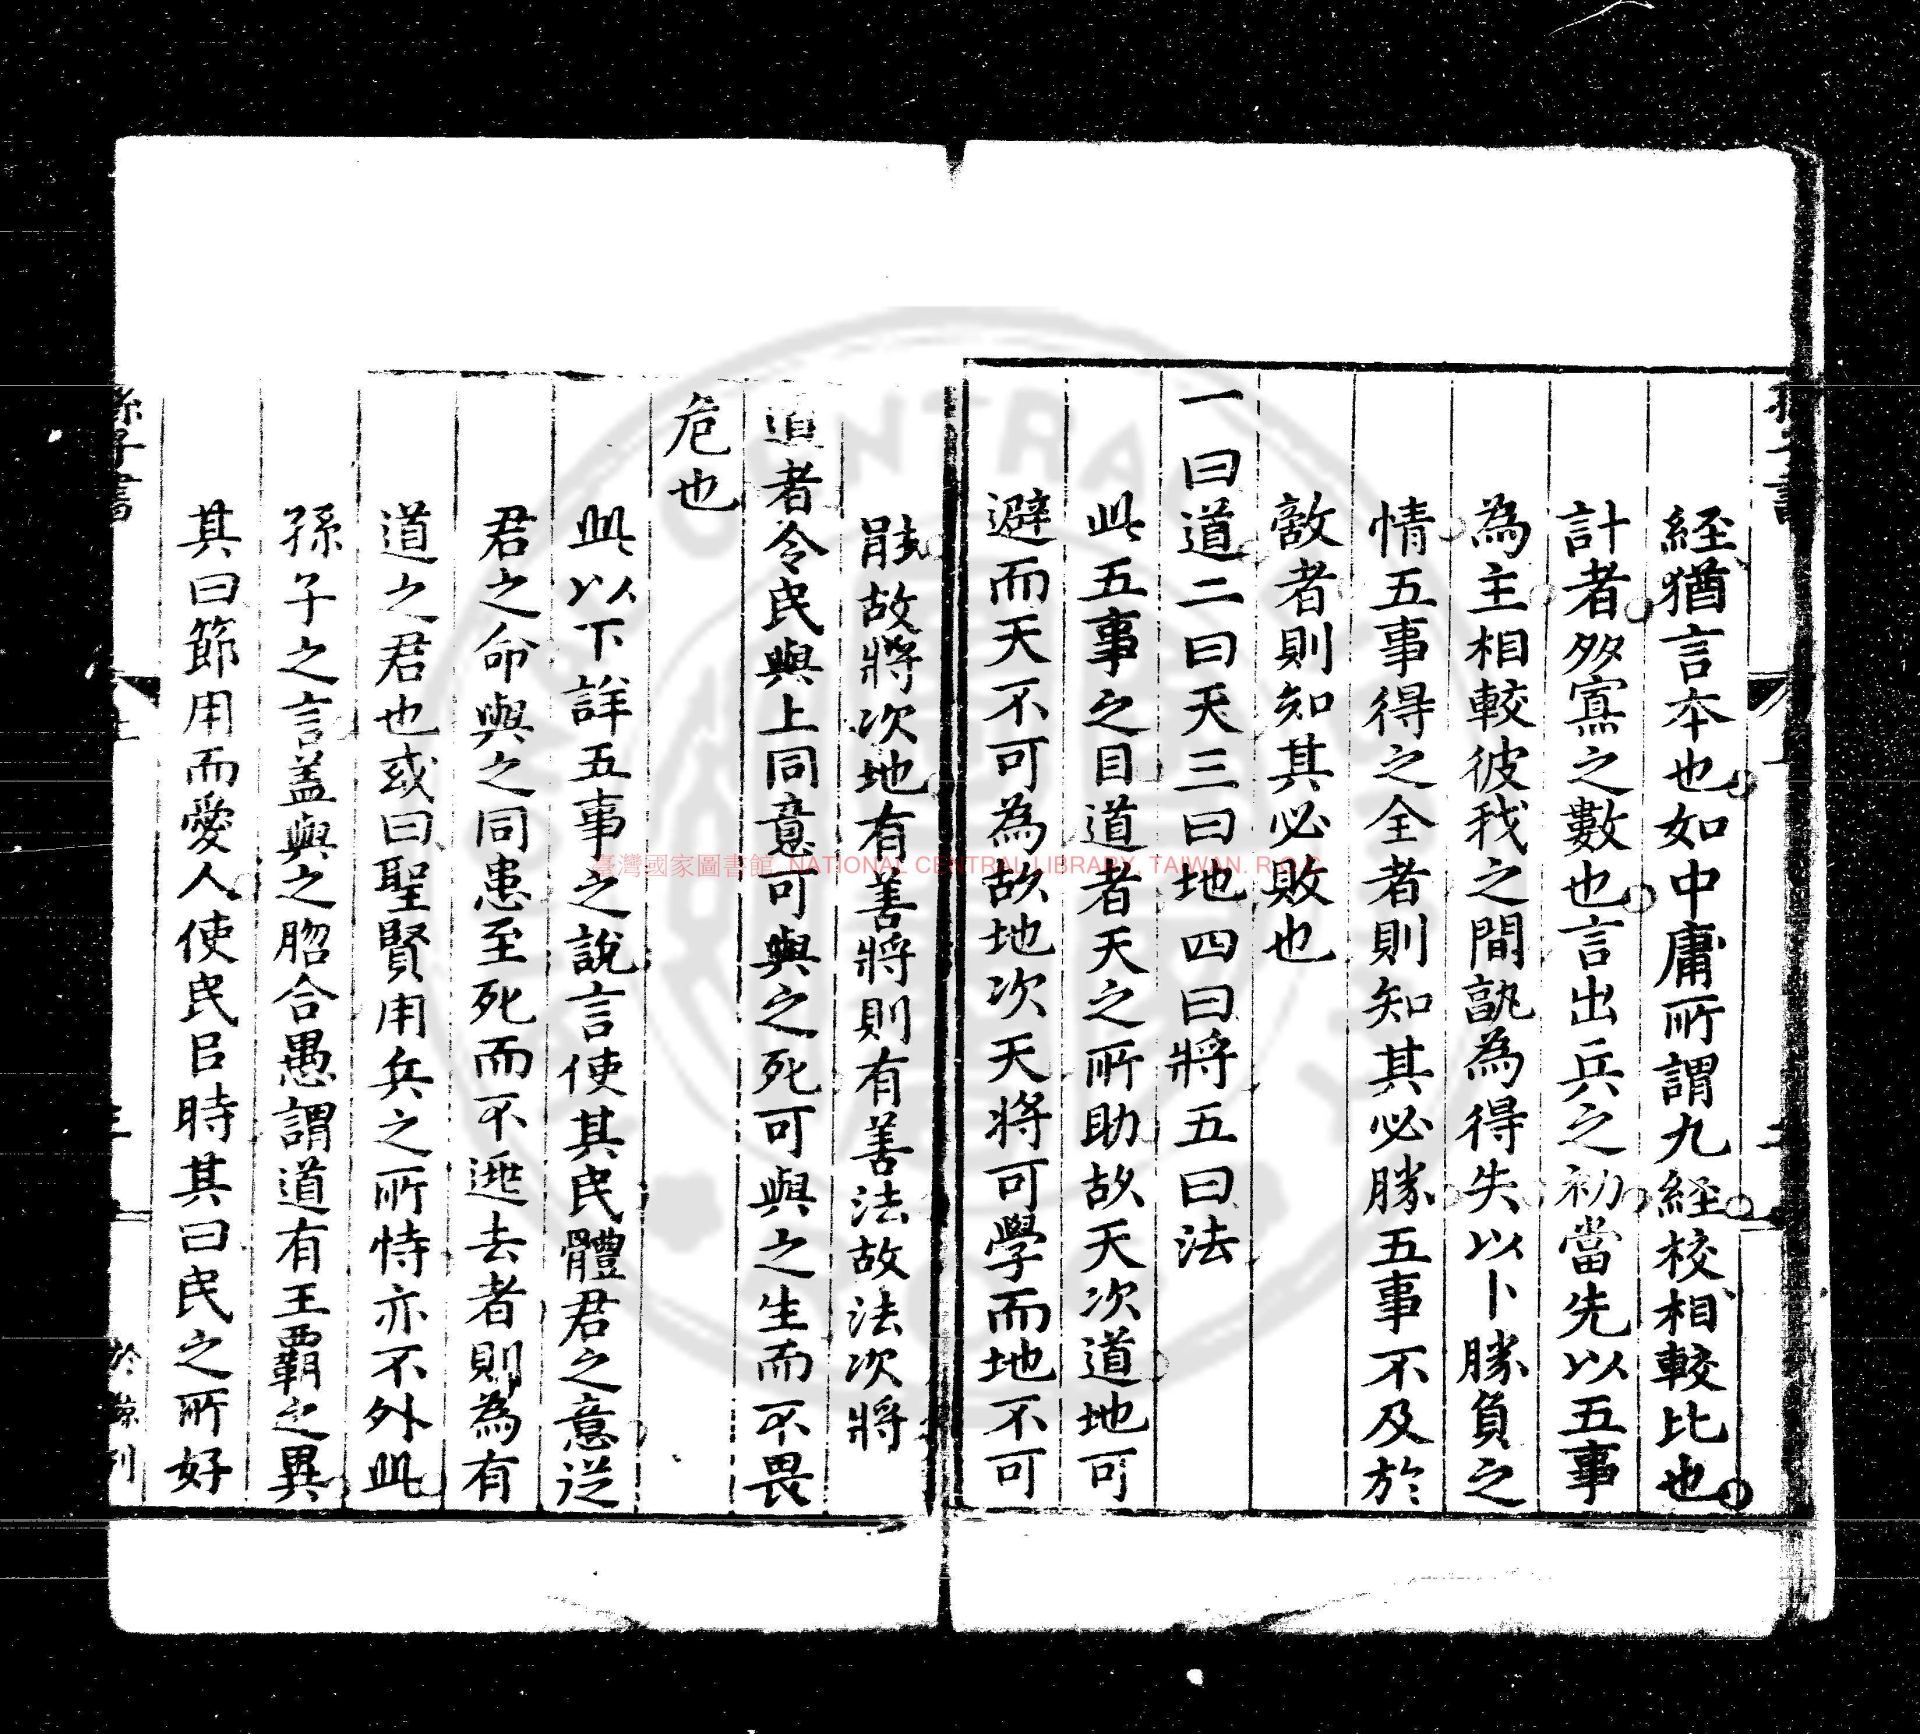 經猶言本也如中庸所謂九經校相較比也
計者多寡之數也言出兵之初當先以五事
為主相較彼我之間孰為得失以卜勝負之
情五事得之全者則知其必勝五事不及於
敵者則知其必敗也
一曰道二曰天三曰地四曰將五曰法
此五事之目道者天之所助故天次道地可
避而天不可為故地次天將可學而地不可
故將次地有善將則有善法故法次將
道者令民與上同意可與之死可與之生而不畏
危也
此以下詳五事之說言使其民體君之意從
君之命與之同患至死而不逃去者則為有
道之君也或曰聖賢用兵之所恃亦不外此
孫子之言盖與之脗合愚謂道有王霸之異
其曰節用而愛人使民以時其曰民之所好
孫子書
臺灣國家圖書館, NATIONAL CENTRAL LIBRARY, TAIWAN, R.O.C